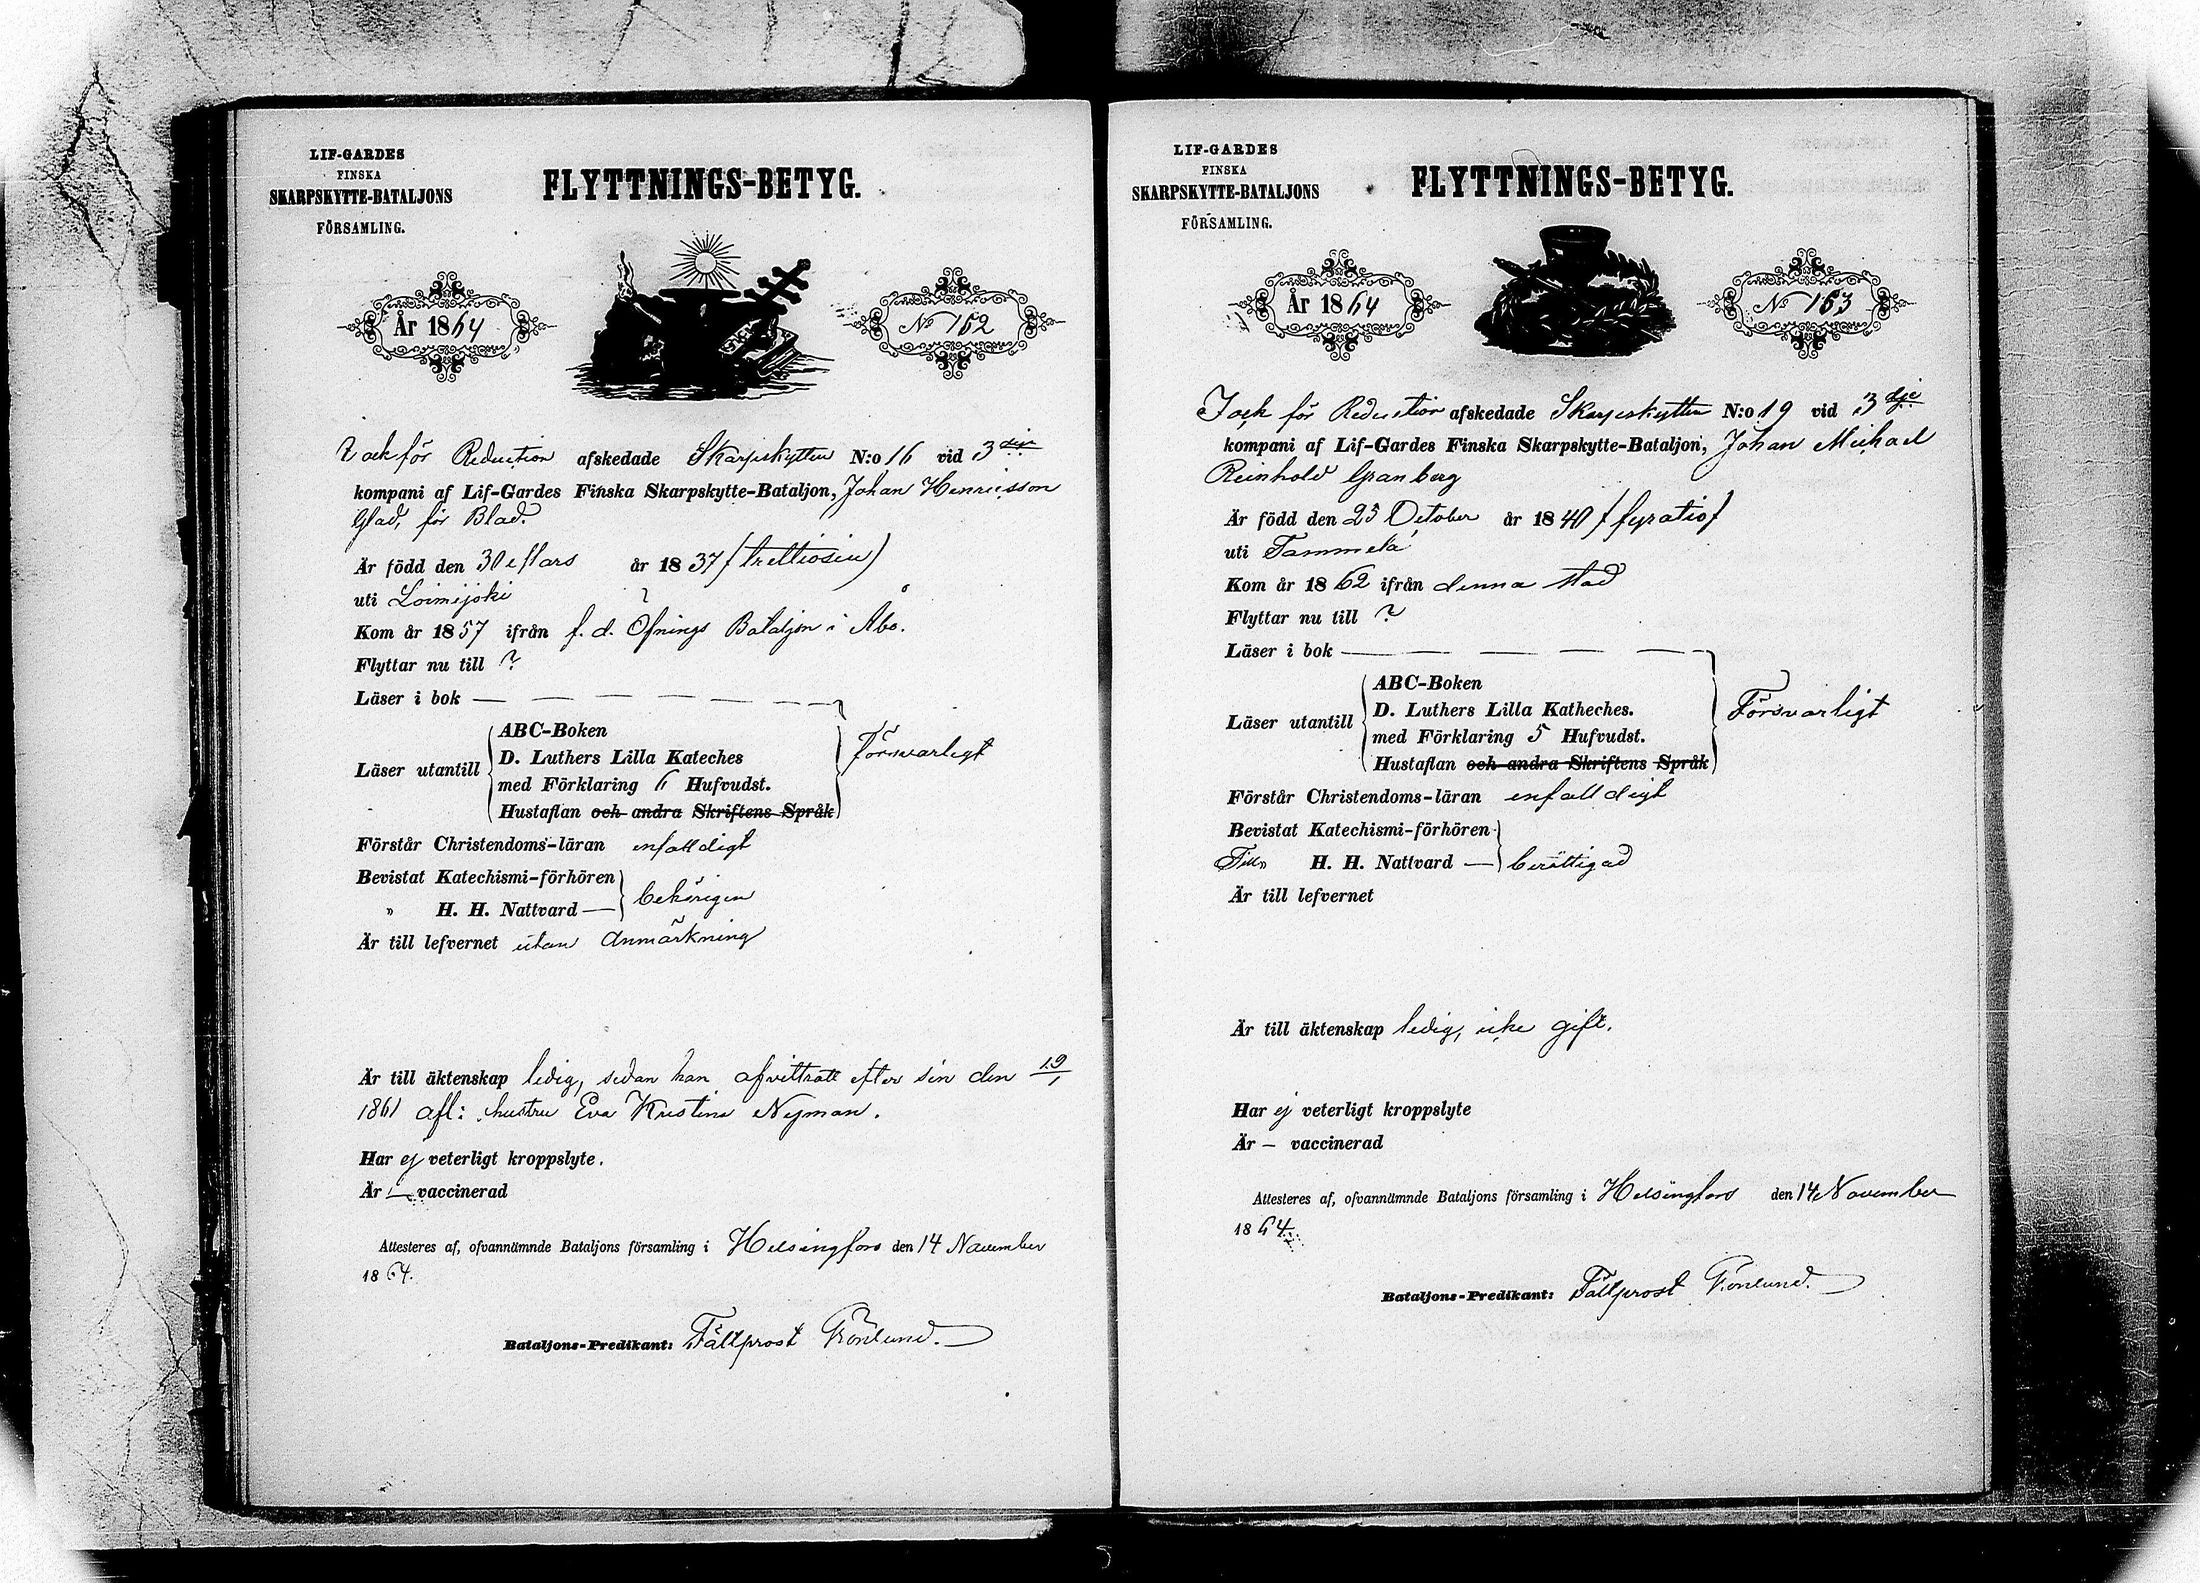 LIF-GARDES
FINSKA
SKARPSKYTTE-BATALJONS
FÖRSAMLING.
FLYTTNINGS-BETYG.
År 1864
No 162
för Reduction afskedade Skarpskytten N:o 16 vid 3
kompani af Lif-Gardes Finska Skarpskytte-Bataljon, Johan Henricsson
Glad, för Blad.
Är född den 30 Mars år 1837 (trettiosju)
uti Loimijoki
Kom år 1857 ifrån f. d. Öfnings Bataljon i Åbo.
Flyttar nu till ?
Läser i bok — — — — —
ABC-Boken
D. Luthers Lilla Kateches
Läser utantill
med Förklaring 6 Hufvudst.
Hustaflan och andra Skriftens Språk
Försvarligt
Förstår Christendoms-läran enfalldigt
Bevistat Katechismi-förhören
" H. H. Nattvard —
behörigen
Är till lefvernet utan Anmärkning
Är till äktenskap ledig, sedan han afvittratt efter sin den 19/1
1861 afl: hustru Eva Kristina Nyman.
Har ej veterligt kroppslyte.
Är — vaccinerad
Attesteres af, ofvannämnde Bataljons församling i Helsingfors den 14 November
1864.
Bataljons-Predikant: Fältprost Grönlund.
LIF-GARDES
FINSKA
SKARPSKYTTE-BATALJONS
FÖRSAMLING.
FLYTTNINGS-BETYG.
År 1864
No 163
för Reduction afskedade Skarpskytten N:o 19 vid 3dje
kompani af Lif-Gardes Finska Skarpskytte-Bataljon, Johan Michael
Reinhold Granberg
Är född den 25 October år 1840 / fyratio /
uti Tammela
Kom år 1862 ifrån denna stad
Flyttar nu till ?
Läser i bok — — — — —
ABC-Boken
D. Luthers Lilla Katheches.
Läser utantill
med Förklaring 5 Hufvudst.
Hustaflan och andra Skriftens Språk
Försvarligt
Förstår Christendoms-läran enfalldigt
Bevistat Katechismi-förhören
Till H. H. Nattvard —
berättigad
Är till lefvernet
Är till äktenskap ledig, icke gift.
Har ej veterligt kroppslyte
Är — vaccinerad
Attesteres af, ofvannämnde Bataljons församling i Helsingfors den 14 November
1864.
Bataljons-Predikant: Fältprost Grönlund.